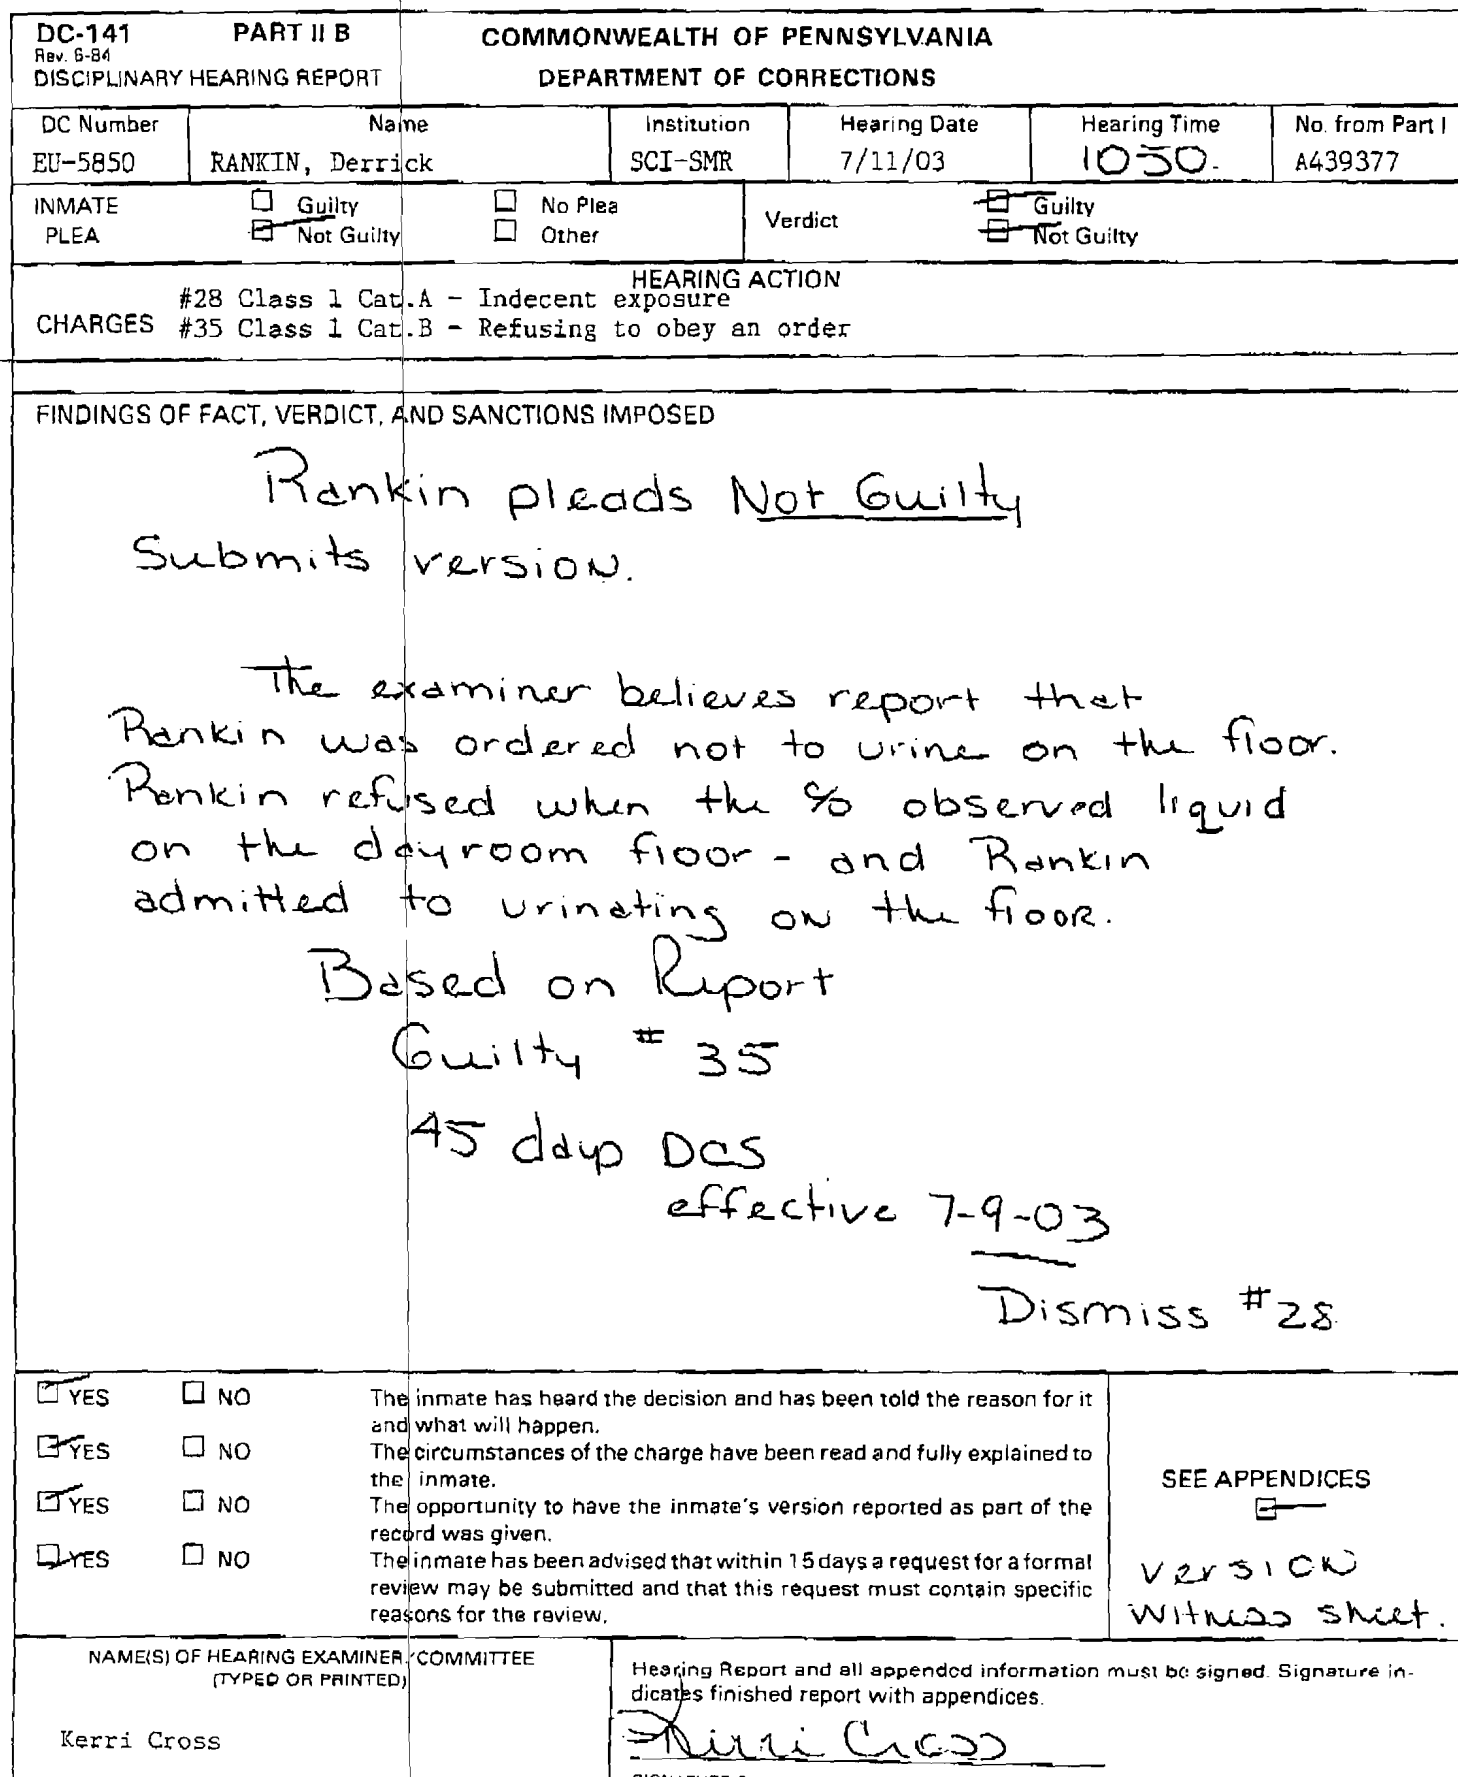 DC-141 PART II B COMMONWEALTH OF PENNSYLVANIA
Rev. 6-84
DISCIPLINARY HEARING REPORT DEPARTMENT OF CORRECTIONS
DC Number Name Institution Hearing Date Hearing Time No. from Part I
EU-5850 RANKIN, Derrick SCI-SMR 7/11/03 1050. A439377
INMATE Guilty No Plea Verdict Guilty
PLEA Not Guilty Other Not Guilty
HEARING ACTION
#28 Class 1 Cat.A - Indecent exposure
CHARGES #35 Class 1 Cat.B - Refusing to obey an order
FINDINGS OF FACT, VERDICT, AND SANCTIONS IMPOSED
Rankin pleads Not Guilty
Submits version.
The examiner believes report that
Rankin was ordered not to urine on the floor.
Rankin refused when the c/o observed liquid
on the dayroom floor - and Rankin
admitted to urinating on the floor.
Based on Report
Guilty # 35
45 days DCS
effective 7-9-03
Dismiss #28
YES NO The inmate has heard the decision and has been told the reason for it
and what will happen.
YES NO The circumstances of the charge have been read and fully explained to
the inmate.
YES NO The opportunity to have the inmate's version reported as part of the
record was given.
YES NO The inmate has been advised that within 15 days a request for a formal
review may be submitted and that this request must contain specific
reasons for the review.
SEE APPENDICES
version
witness sheet.
NAME(S) OF HEARING EXAMINER/COMMITTEE
(TYPED OR PRINTED)
Kerri Cross
Hearing Report and all appended information must be signed. Signature in-
dicates finished report with appendices.
Kerri Cross